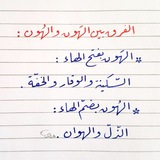 الفرق بين الهَون والهُون :
* الهَون بفتح الهاء :
السَّكينة والوقار والخفّة .
* الهُون بضمّ الهاء :
الذّل والهوان .